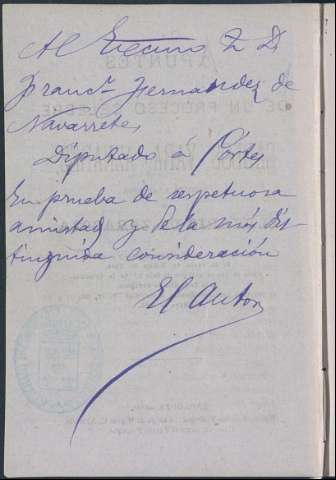 Al Excmo Sr D
Francº Fernandez de
Navarrete,
Diputado á Córtes
En prueba de respetuosa
amistad y de la más dis-
tinguida consideración
El Autor